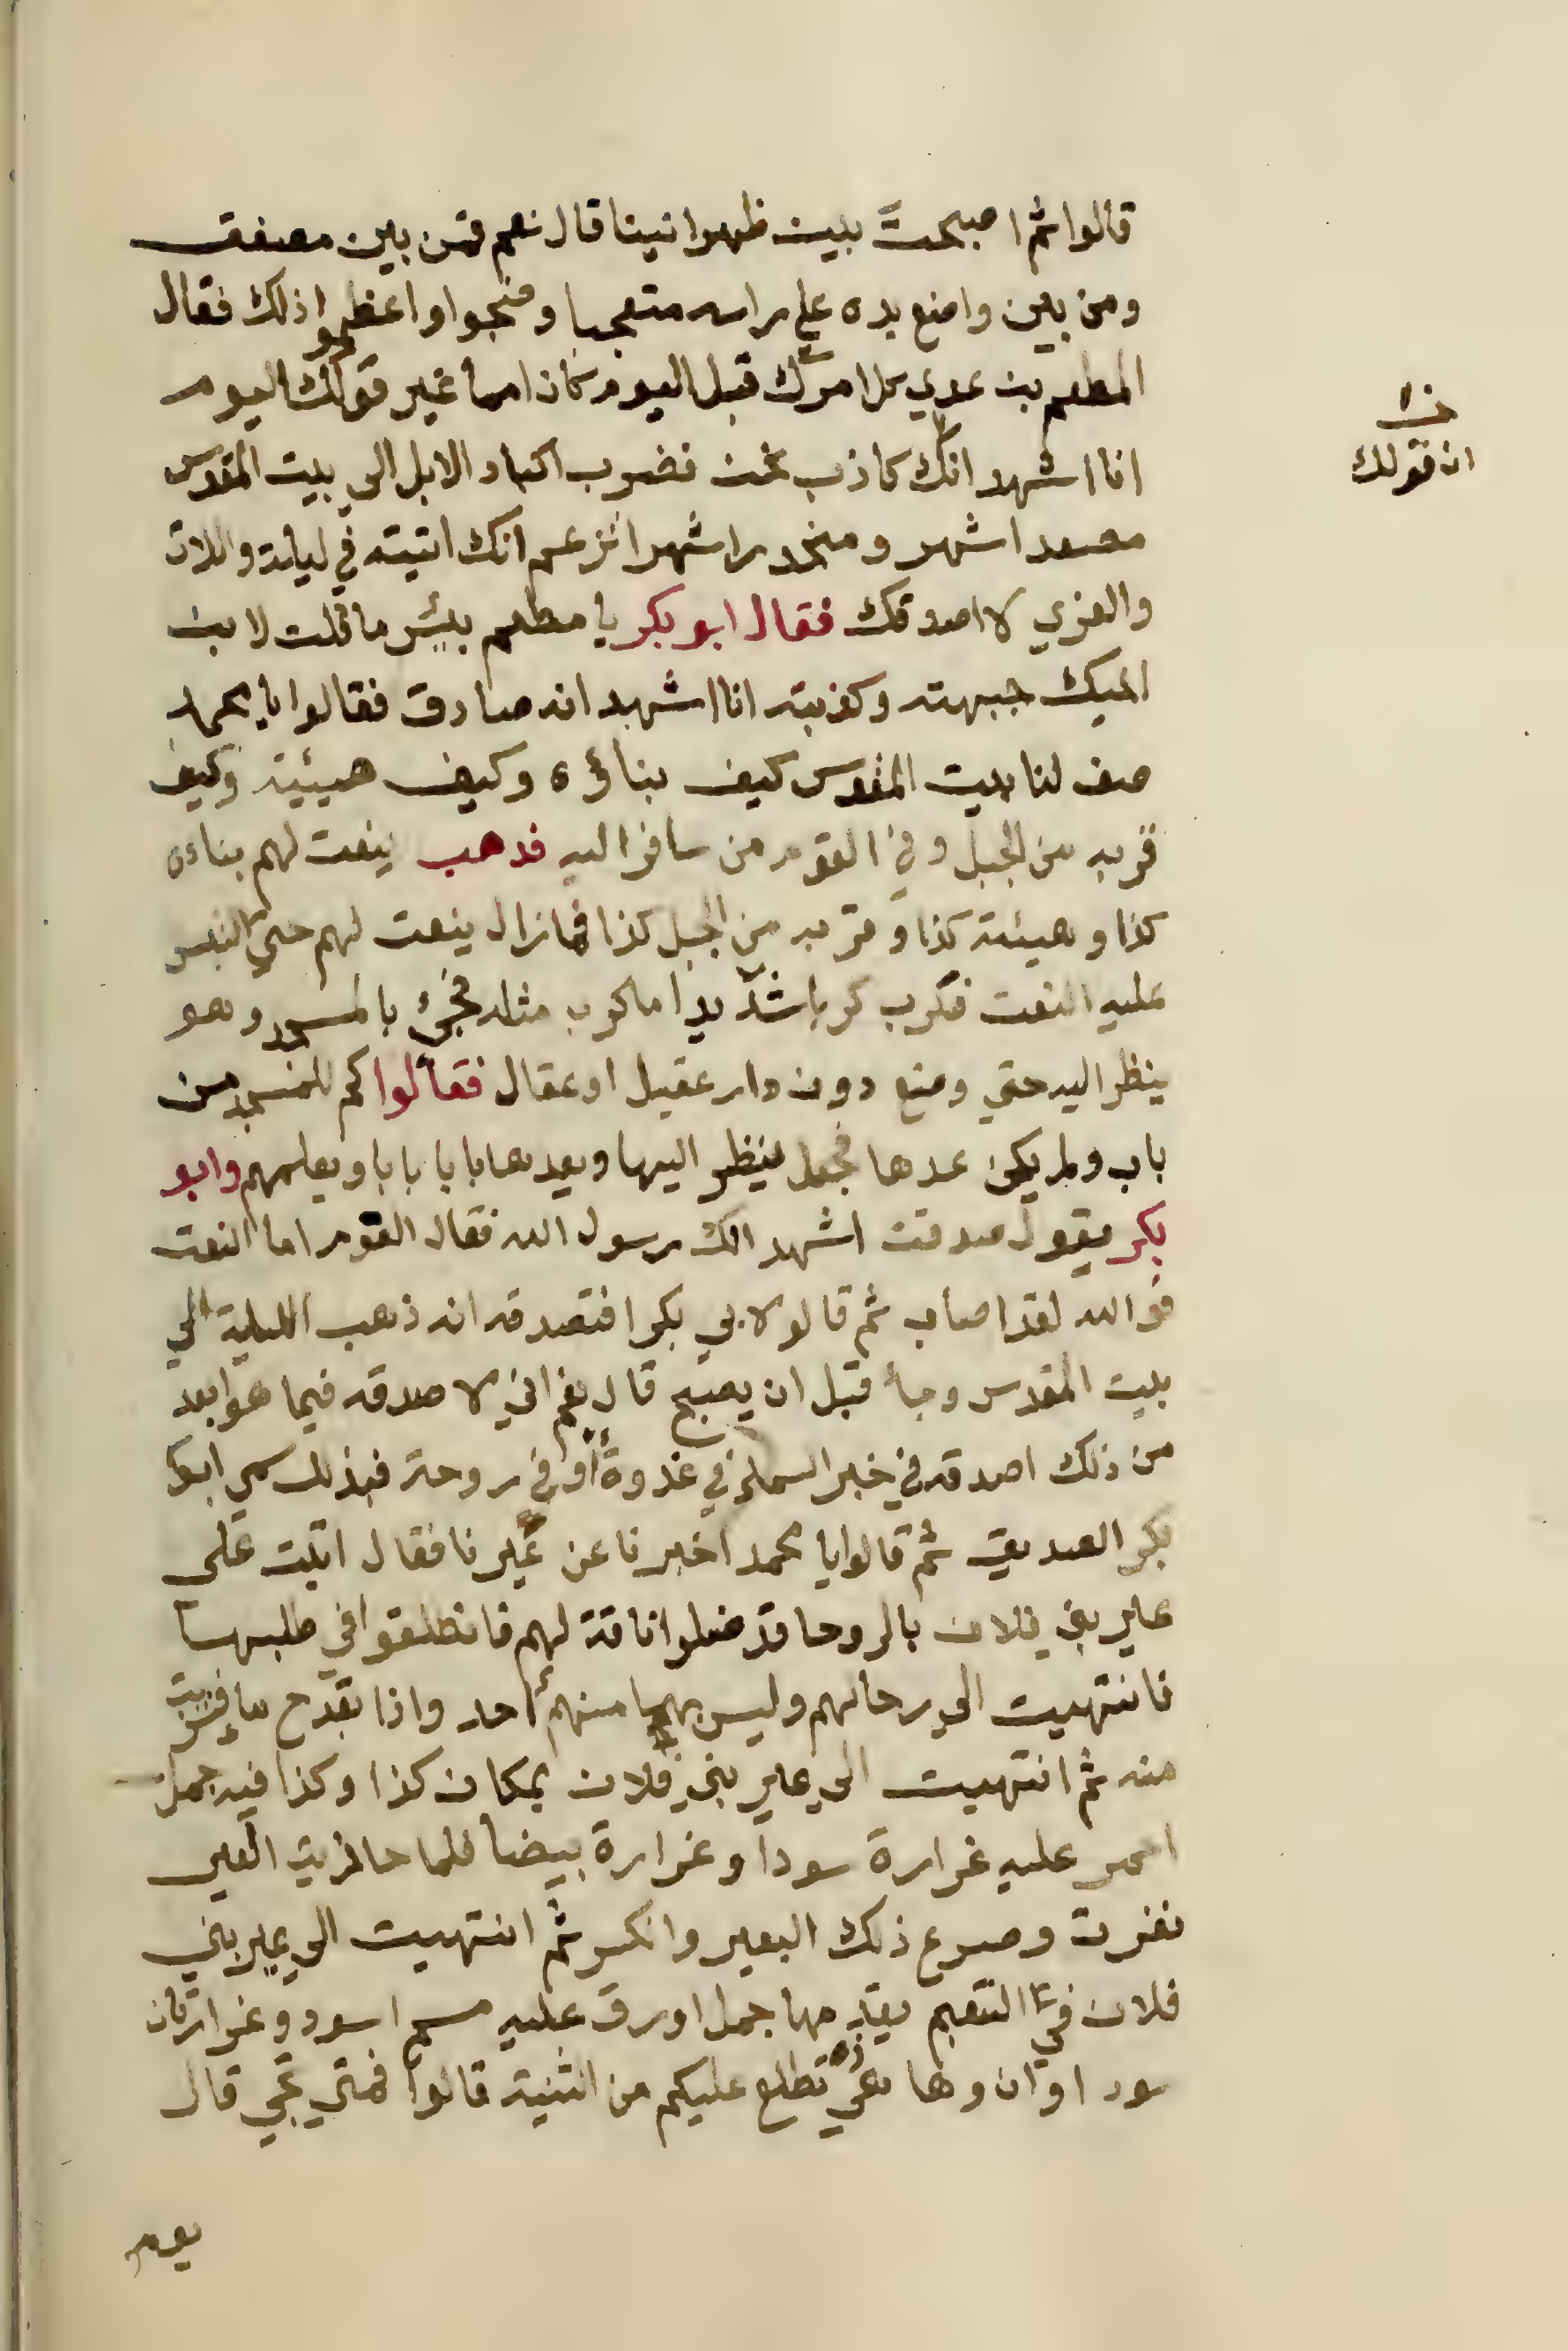 قالوا ثم اصبحت بين ظهرانينا قال نعم فمن بين مصفق
ومن بين واضع يده علي راسه متعجبا وضجوا واعظموا ذلك فقال
المطعم بن عدي كل امرك قبل اليوم كان امما غير قولك اليوم
انا اشهد انك كاذب نحن نضرب اكباد الابل الي بيت المقدس
مصعدا شهر ومنحدرا شهرا تزعم انك اتيته في ليلة واللات
والعزي لا اصدقك فقال ابو بكر يا مطعم بئس ما قلت لابن
اخيك جبهته وكذبته انا اشهد انه صادق فقالوا يا محمد
صف لنا بيت المقدس كيف بناؤه وكيف هيئية وكيف
قربه من الجبل وفي القوم من سافر اليه فذهب ينعت لهم بناءه
كذا وهيئته كذا وقربه من الجبل كذا فما زال ينعت لهم حتي التبس
عليه النعت فكرب كربا شديدا ما كرب مثله فجئ بالمسجد وهو
ينظر اليه حتي وضع دون دار عقيل او عقال فقالوا كم للمسجد من
باب ولم يكن عدها فجعل ينظر اليها ويعدها بابا بابا ويعلمهم وابو
بكر يقول صدقت اشهد انك رسول الله فقال القوم اما النعت
فوالله لقد اصاب ثم قالو لابي بكر افتصدقه انه ذهب الليلة الي
بيت المقدس وجأ قبل ان يصبح قال نعم اني لاصدقه فيما هو ابعد
من ذلك اصدقه في خبر السماء في غدوة أو في روحة فبذلك سمي ابو
بكر الصديق ثم قالوا يا محمد اخبرنا عن عيرنا فقال اتيت علي
عير بني فلان بالروحا قد ضلوا ناقة لهم فانطلقوا في طلبها
فانتهيت الي رحالهم وليس بها منهم أحد واذا بقدح ما فشربت
منه ثم انتهيت الي عير بني فلان بمكان كذا وكذا فيه جمل
احمر عليه غرارة سودا وغرارة بيضا فلما حاذيت العير
نفرت وصرع ذلك البعير وانكسر ثم انتهيت الي عير بني
فلان في التنعيم يقدمها جمل اورق عليه مسح اسود وغرارتان
سوداوان وها هي ذه تطلع عليكم من الثنية قالوا فمتي تجي قال
يوم
ان قولك